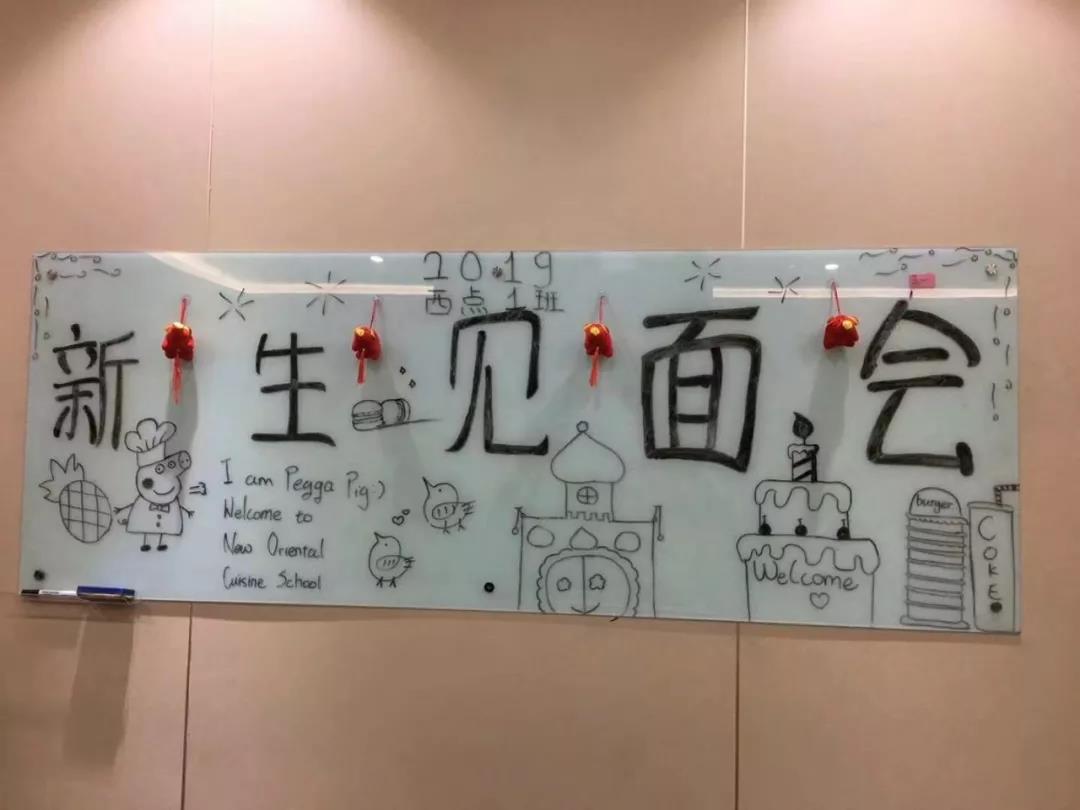 2019
西点1班
新生见面会
I am Pegga Pig:)
Welcome to
New Oriental
Cuisine School
Welcome
burger
COKE